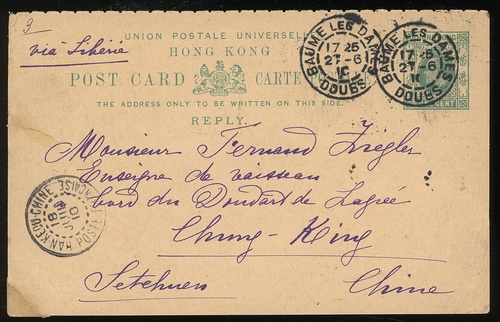 UNION POSTALE UNIVERSELLE
via Sibérie
HONG KONG
POST CARD CARTE
THE ADDRESS ONLY TO BE WRITTEN ON THIS SIDE.
REPLY.
BAUME LES DAMES
17 25
27 - 6
10
DOUBS
BAUME LES DAMES
17 25
27 - 6
10
DOUBS
CENT
Monsieur Fernand Ziegler
Enseigne de vaisseau
bord du Doudart de Lagrée
Chung-King
Setchuen Chine
HAN-KEOU-CHINE
POSTE FRANÇAISE
18
JUIL
10